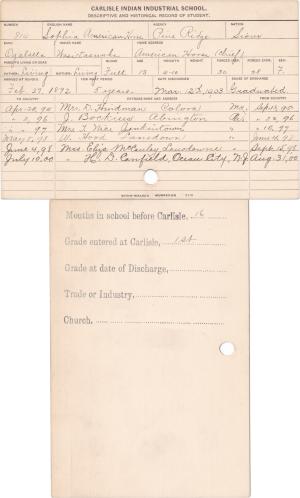 CARLISLE INDIAN INDUSTRIAL SCHOOL.
DESCRIPTIVE AND HISTORICAL RECORD OF STUDENT.
NUMBER ENGLISH NAME AGENCY NATION
Sophia American Horse Pine Ridge Sioux
BAND INDIAN NAME HOME ADDRESS
Ogalalla American Horse (Chief)
PARENTS LIVING OR DEAD BLOOD AGE HEIGHT WEIGHT FORCED INSP. FORCED EXPR. SEX
Living Living Full 13 F.
ARRIVED AT SCHOOL FOR WHAT PERIOD DATE DISCHARGED CAUSE OF DISCHARGE
Feb 27, 1892 5 years Mar 1903 Graduated
TO COUNTRY PATRONS NAME AND ADDRESS FROM COUNTRY
Mr. D. Hindman Colora Md.
J. Bocking Abington Pa.
Jenkintown
W. Hood Lansdown
June 4, 98 Mrs Eliza McCauley Lansdowne " Sept 15, 98
July 10, 00 H. D. Canfield, Ocean City, N.J. Aug. 31, 00
Months in school before Carlisle, 16
Grade entered at Carlisle, 1st
Grade at date of Discharge,
Trade or Industry,
Church,